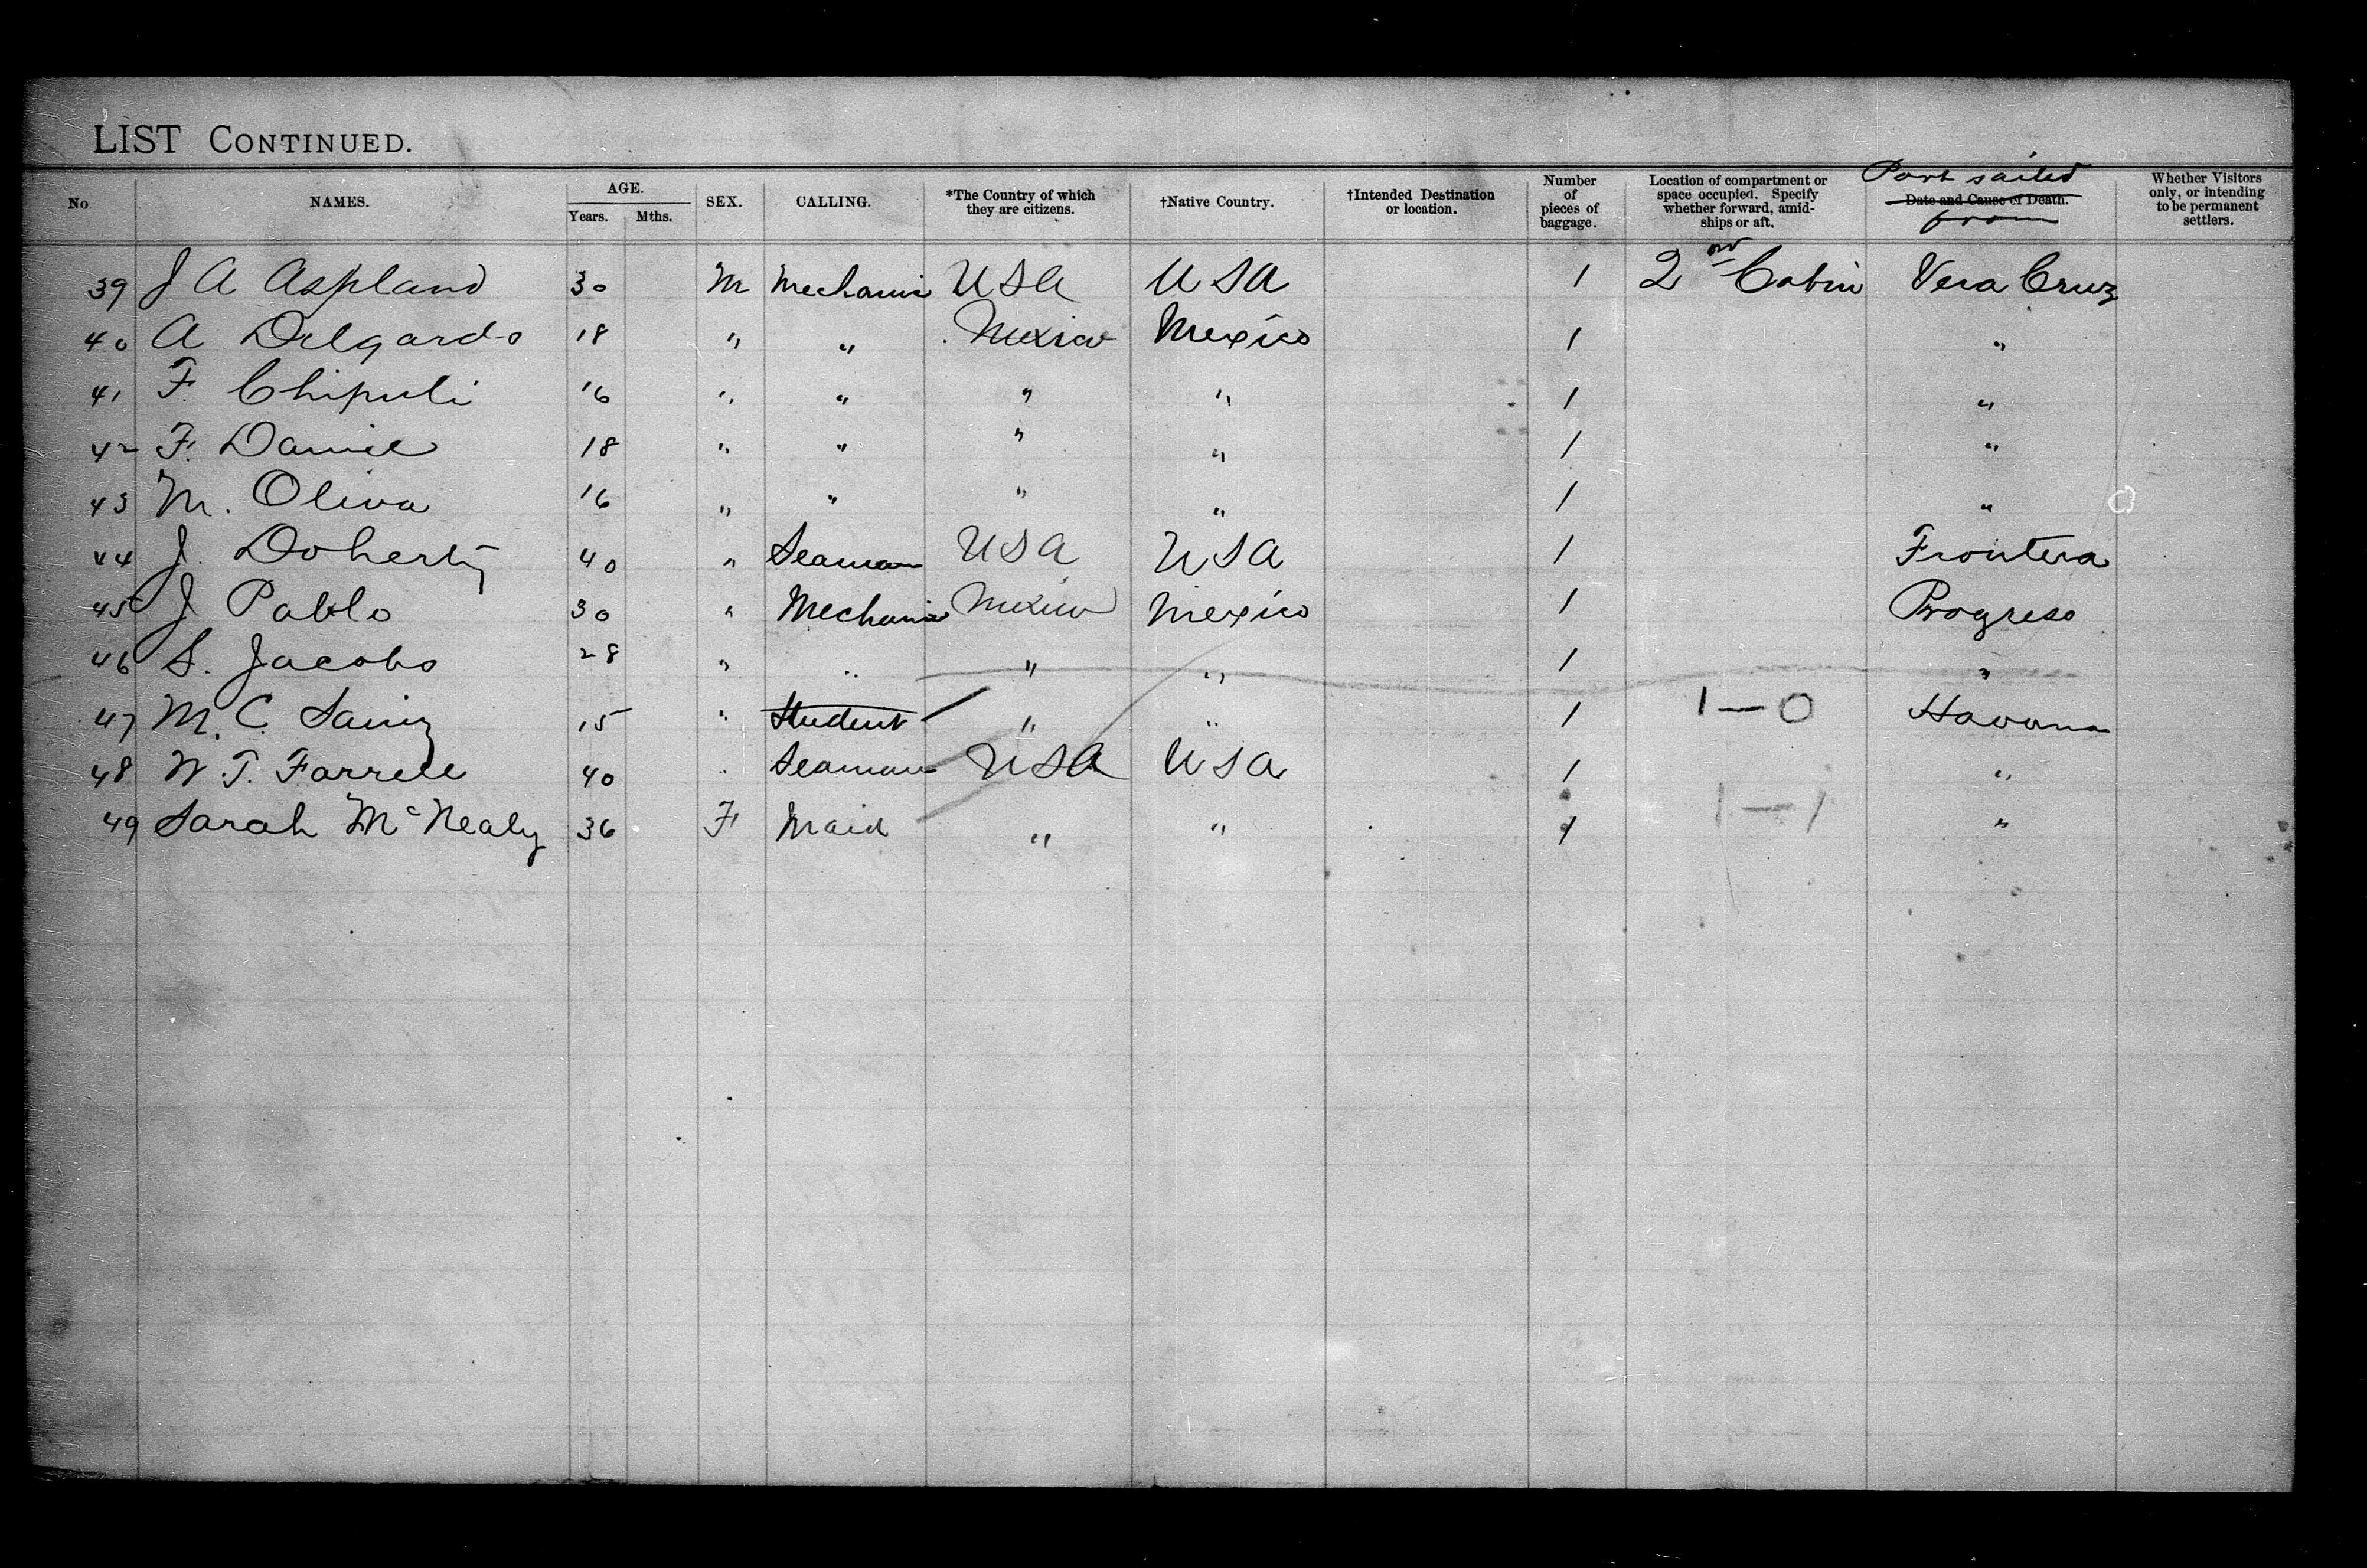 LIST CONTINUED.
No. NAMES. AGE. Years. Mths. SEX. CALLING. *The Country of which they are citizens. †Native Country. †Intended Destination or location. Number of pieces of baggage. Location of compartment or space occupied. Specify whether forward, amidships or aft. Port sailed from Date and Cause of Death. Whether Visitors only, or intending to be permanent settlers.
39 J A Aspland 30 M Mechanic USA USA 1 2nd Cabin Vera Cruz
40 A Delgardo 18 " " Mexico Mexico 1 "
41 F. Chipuli 16 " " " " 1 "
42 F. Daniel 18 " " " " 1 "
43 M. Oliva 16 " " " " 1 "
44 J. Doherty 40 " Seaman USA USA 1 Frontera
45 J Pablo 30 " Mechanic Mexico Mexico 1 Progreso
46 S. Jacobs 28 " " " " 1 "
47 M. C. Sainz 15 " Student " " 1 1-0 Havana
48 W. T. Farrell 40 " Seaman USA USA 1 "
49 Sarah McNealy 36 F Maid " " 1 1-1 "